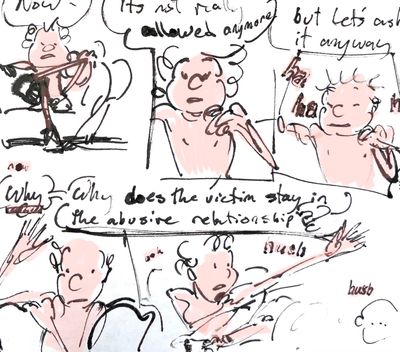 Now?
It's not really
allowed anymore
but let's ask
it anyway
ha
ha
ha
now
Why
Why does the victim stay in
the abusive relationship??
ooh
hush
hush
...